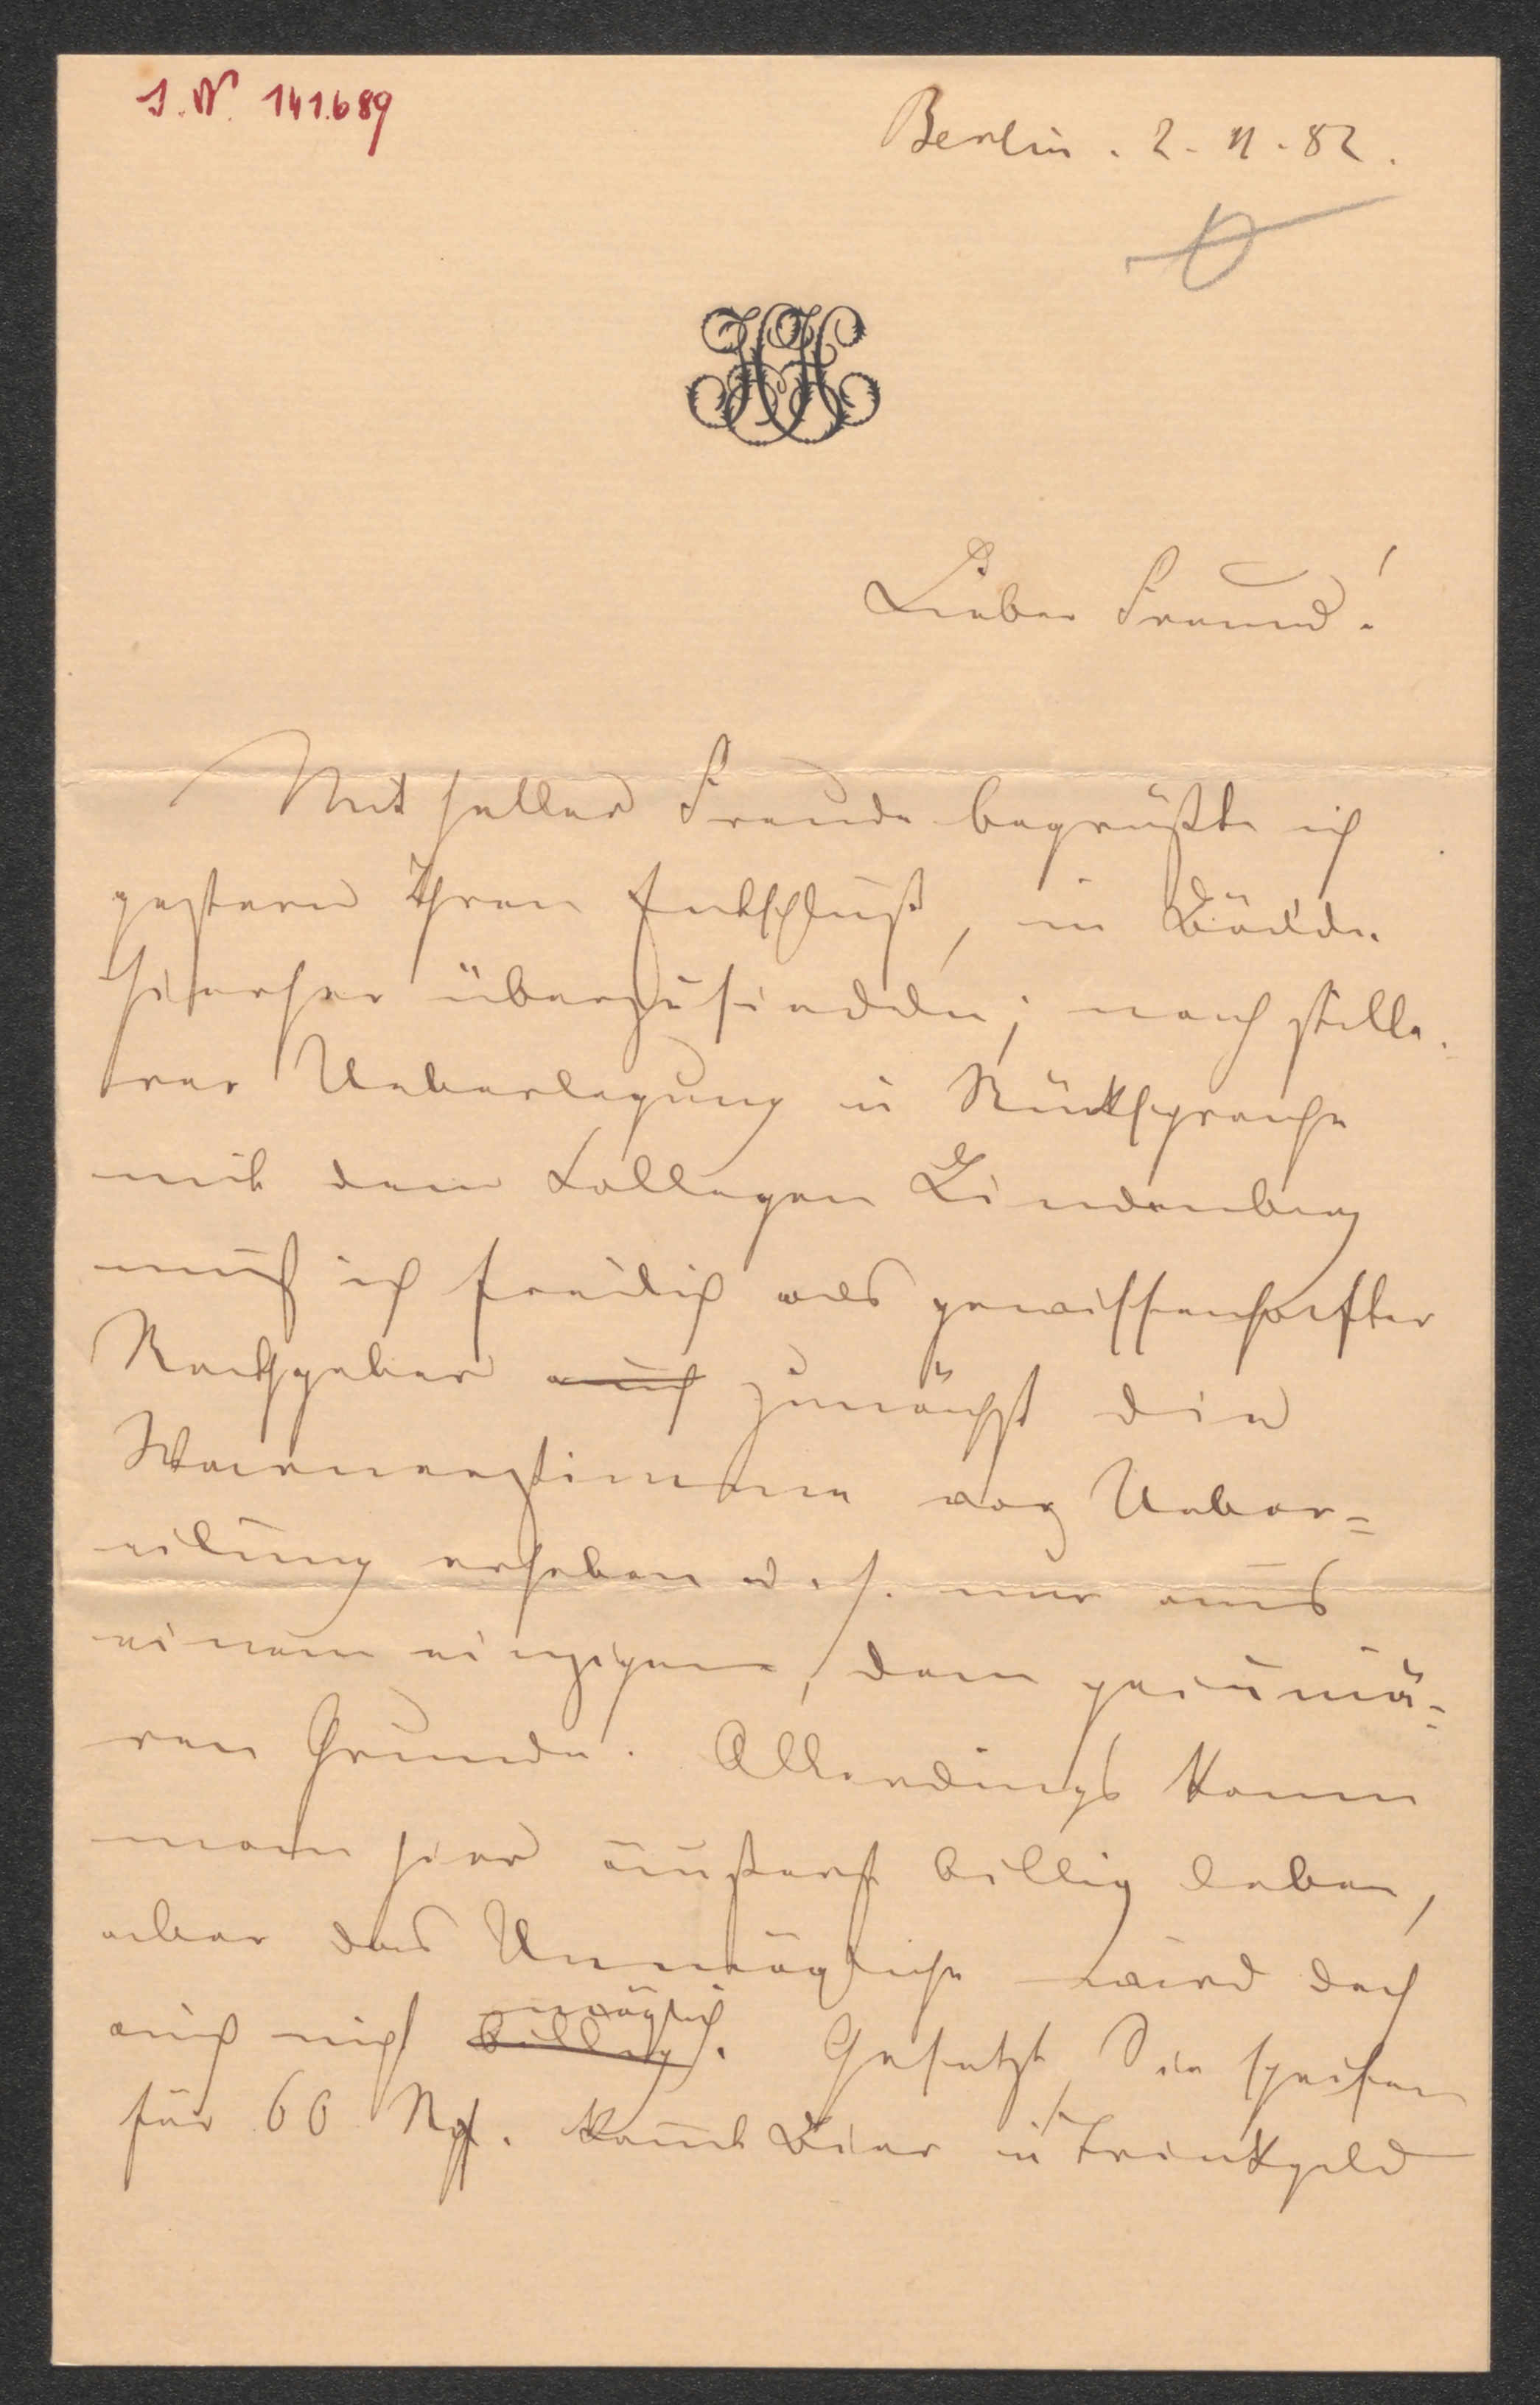 J.N. 141.689
Berlin. 2. 11. 82.
HH
Lieber Freund!
Mit heller Freude begrüßte ich
gestern Ihren Entschluß, in Bälde
hierher überzusiedeln; nach stille-
rer Ueberlegung u Rücksprache
mit dem Collegen Lindenberg
muß ich freilich als gewissenhafter
Rathgeber auch zunächst die
Warnerstimme vor Ueber=
eilung erheben d. h. nur aus
einem einzigen, dem pecuniä-
ren Grunde. Allerdings kann
man hier äußerst billig leben,
aber das Unmögliche wird doch
auch nicht billig möglich. Gesetzt, Sie speisen
für 60 Rpf. sammt Bier u Trinkgeld